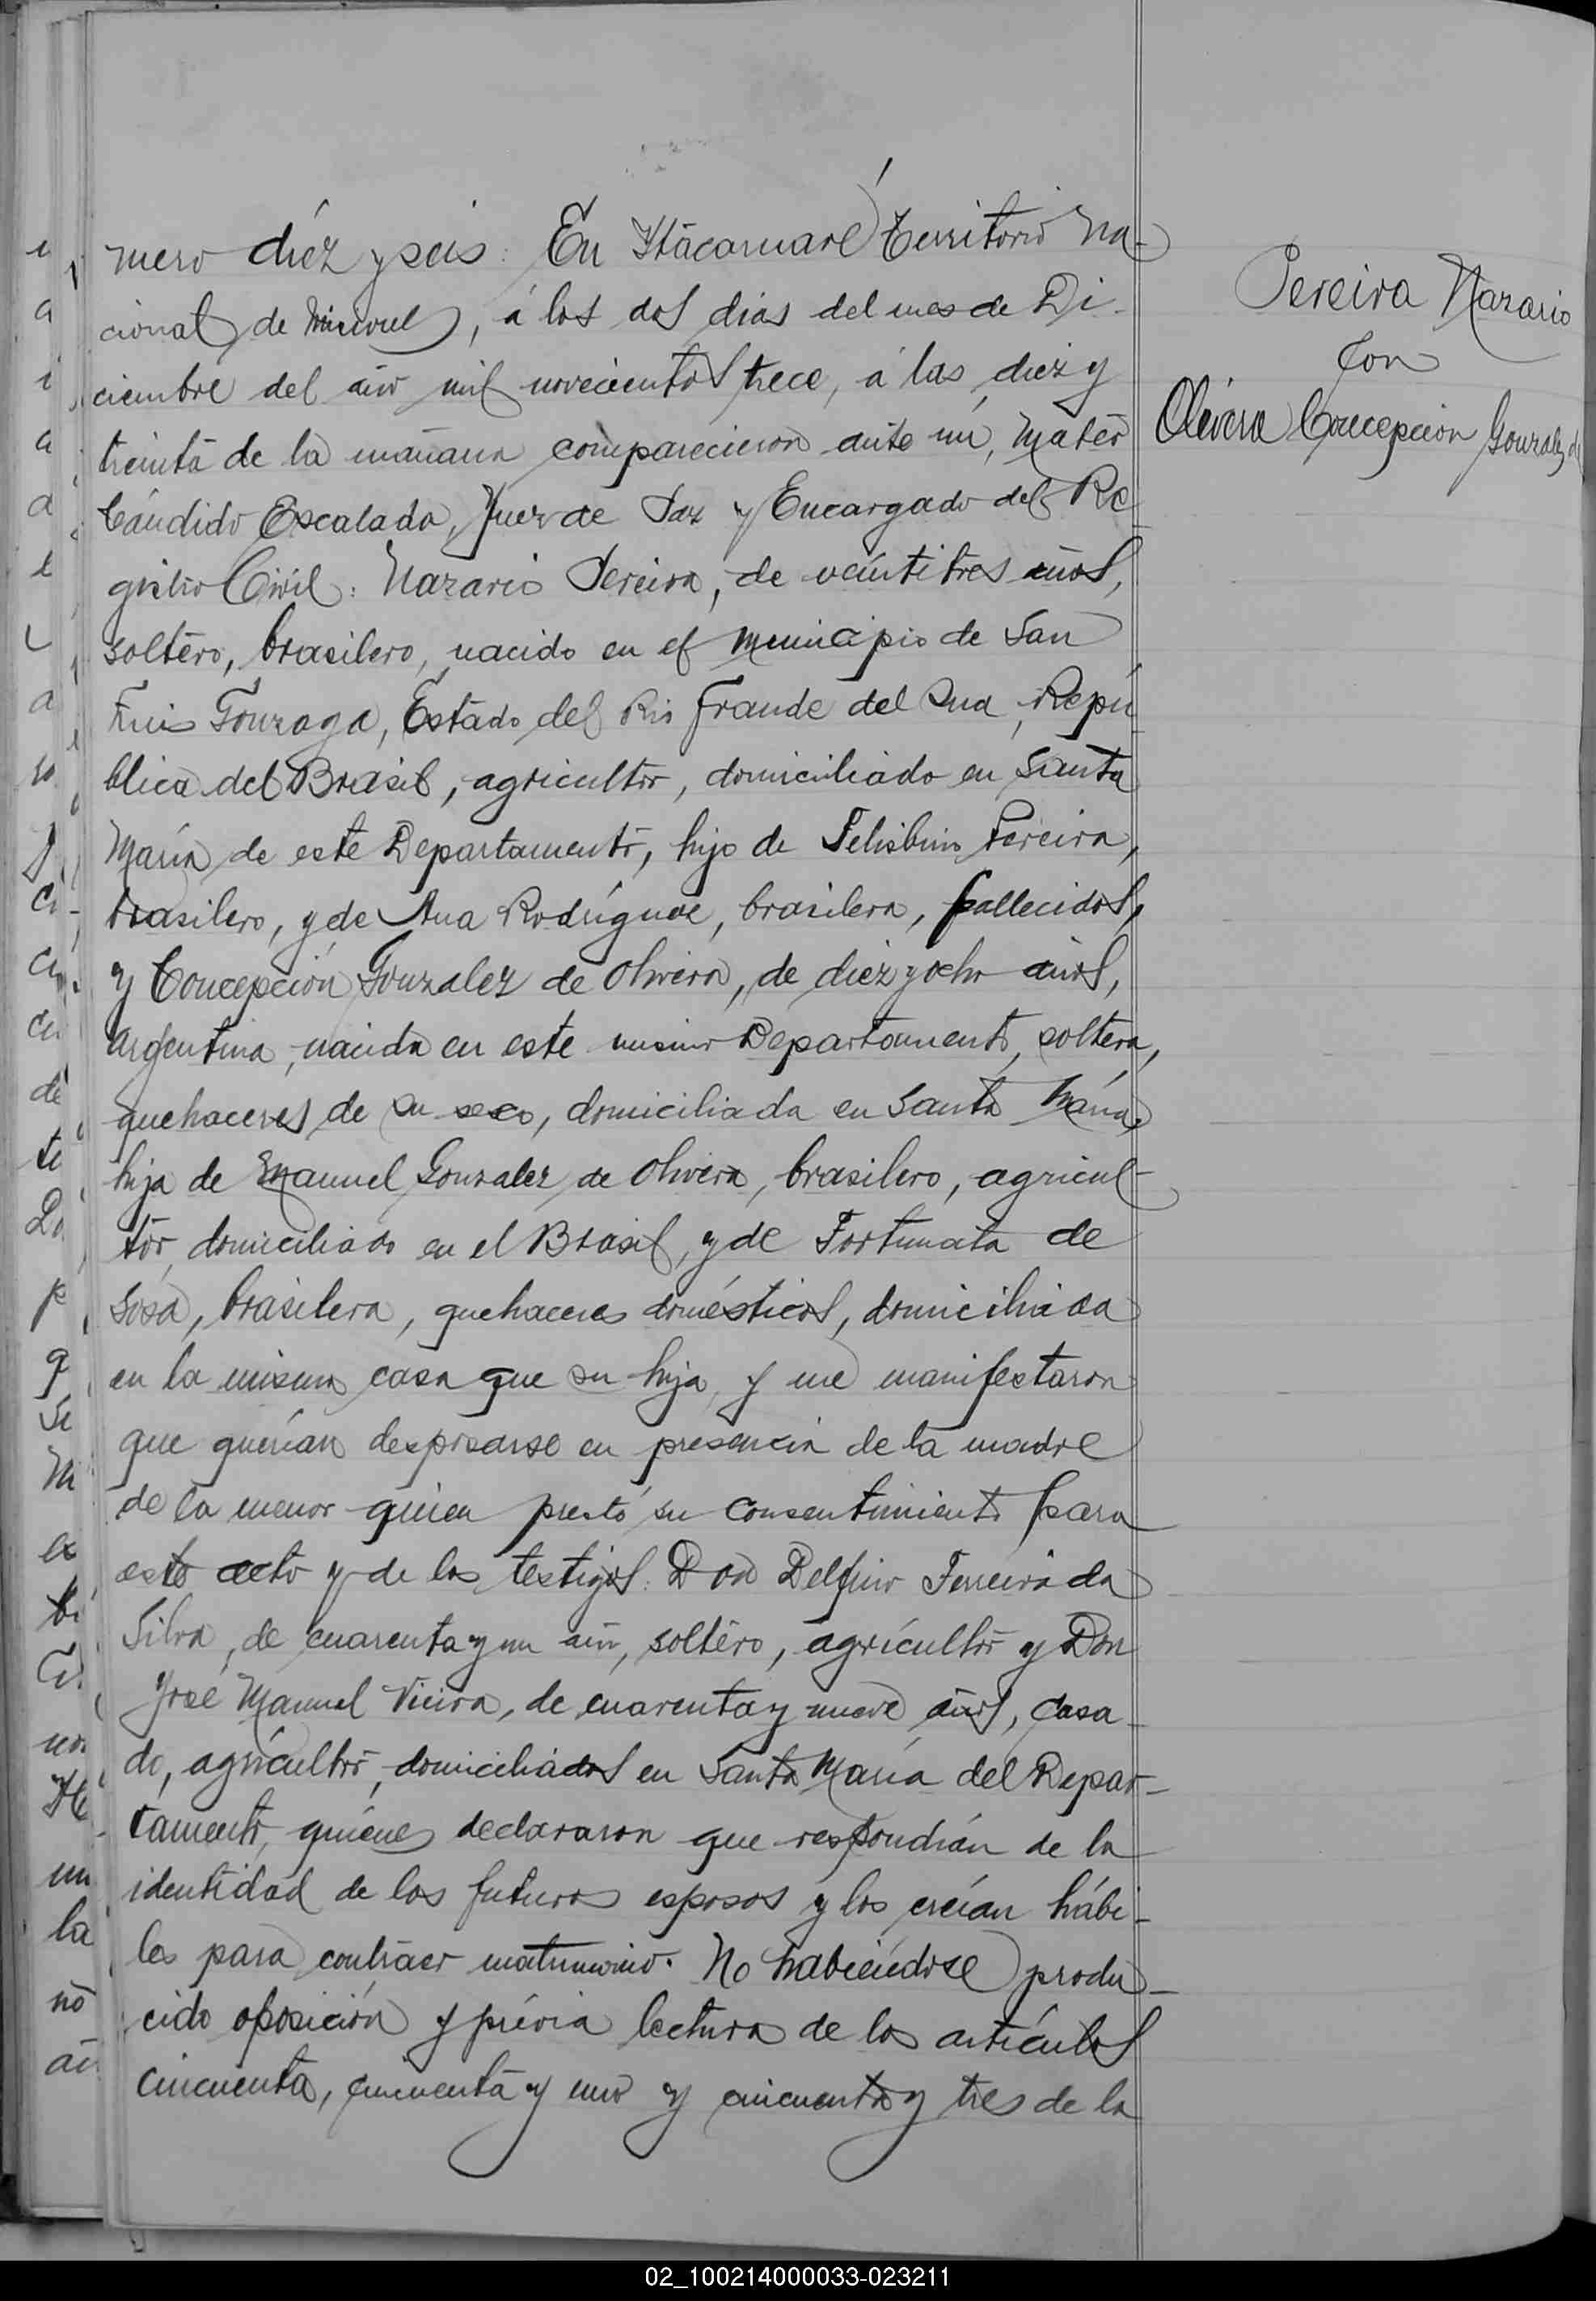 mero diéz y seis: En Itacaruaré Territorio Na-
cional de Misiones, á los dos dias del mes de Di-
ciembre del año mil novecientos trece, á las diez y
treinta de la mañana comparecieron ante mi, Mateo
Cándido Escalada, Juez de Paz y Encargado del Re-
gistro Civil: Nazario Pereira, de veintitres años,
soltero, brasilero, nacido en el Municipio de San
Luis Gonzaga, Estado del Rio Grande del Sud, Repú-
blica del Brasil, agricultor, domiciliado en Santa
María de este Departamento, hijo de Felisbino Pereira,
brasilero, y de Ana Rodríguez, brasilera, fallecidos,
y Concepción Gonzalez de Olivera, de diez y ocho años,
argentina, nacida en este mismo Departamento, soltera,
quehaceres de su sexo, domiciliada en Santa María,
hija de Manuel Gonzalez de Olivera, brasilero, agricul-
tor, domiciliado en el Brasil, y de Fortunata de
Sosa, brasilera, quehaceres domésticos, domiciliada
en la misma casa que su hija, y me manifestaron
que querían desposarse en presencia de la madre
de la menor quien prestó su consentimiento para
este acto y de los testigos: Don Delfino Ferreira da
Silva, de cuarenta y un año, soltero, agrícultor y Don
José Manuel Vieira, de cuarenta y nueve años, casa-
do, agrícultor, domiciliados en Santa María del Depar-
tamento, quiénes declararon que respondían de la
identidad de los futuros esposos y los creían hábi-
les para contraer matrimonio. No habiéndose produ-
cido oposición y prévia lectura de los artículos
cincuenta, cincuenta y uno y cincuenta y tres de la
Pereira Nazario
con
Olivera Concepcion Gonzalez de
02_100214000033-023211